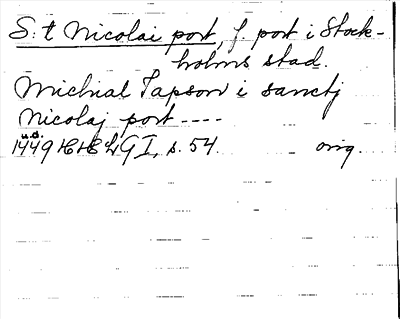 S:t Nicolai port, f. port i Stock-
holms stad.
Michial Japson i sanctj
Nicolaj port ----
u.d.
1449 HSH LGI, s. 54. orig.